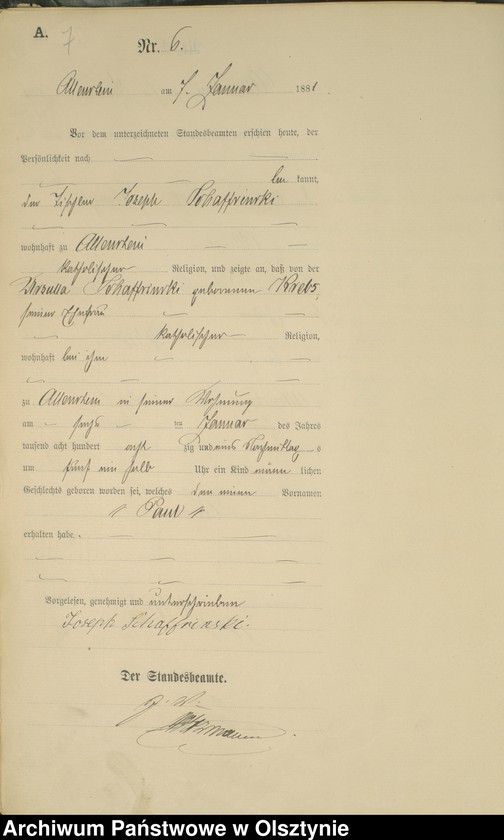 A. 7
Nr. 6.
Allenstein am 7. Januar 1881
Vor dem unterzeichneten Standesbeamten erschien heute, der
Persönlichkeit nach
be kannt,
der Tischler Joseph Schaffrinski
wohnhaft zu Allenstein
katholischer Religion, und zeigte an, daß von der
Ursula Schaffrinski geborenen Krebs,
seiner Ehefrau
katholischer Religion,
wohnhaft bei ihm
zu Allenstein in seiner Wohnung
am sechs ten Januar des Jahres
tausend acht hundert acht zig und eins Nachmittags
um fünf ein halb Uhr ein Kind männ lichen
Geschlechts geboren worden sei, welches den einen Vornamen
" Paul "
erhalten habe.
Vorgelesen, genehmigt und unterschrieben
Joseph Schaffrinski.
Der Standesbeamte.
J. V.
Archiwum Państwowe w Olsztynie